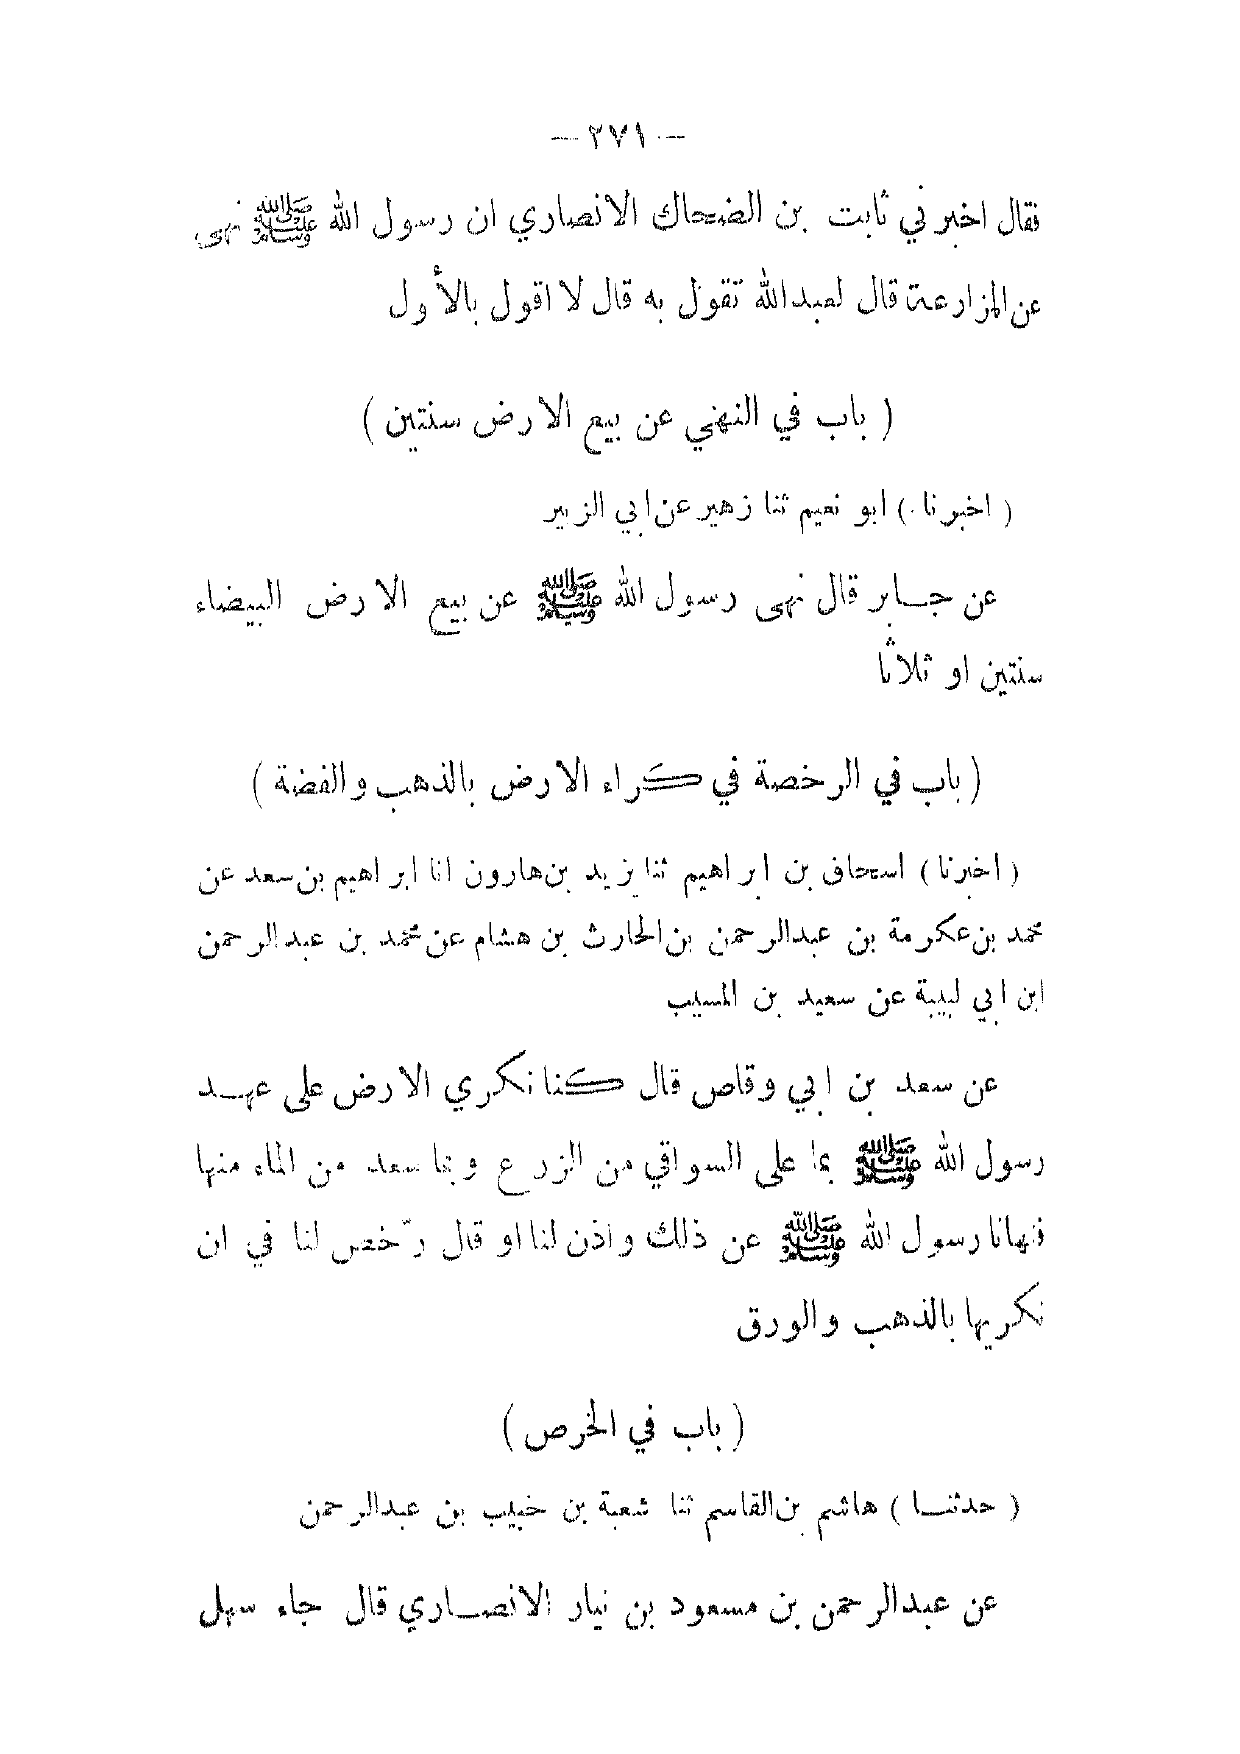 — ٢٧١ —
فقال اخبرني ثابت بن الضحاك الانصاري ان رسول الله ﷺ نهى
عن المزارعة قال لعبدالله تقول به قال لا اقول بالأول
( باب في النهي عن بيع الارض سنتين )
( اخبرنا ) ابو نعيم ثنا زهير عن ابي الزبير
عن جابر قال نهى رسول الله ﷺ عن بيع الارض البيضاء
سنتين او ثلاثا
( باب في الرخصة في كراء الارض بالذهب والفضة )
( اخبرنا ) اسحاق بن ابراهيم ثنا يزيد بن هارون انا ابراهيم بن سعد عن
محمد بن عكرمة بن عبدالرحمن بن الحارث بن هشام عن محمد بن عبدالرحمن
ابن ابي لبيبة عن سعيد بن المسيب
عن سعد بن ابي وقاص قال كنا نكري الارض على عهد
رسول الله ﷺ بما على السواقي من الزرع وبما سعد من الماء منها
فنهانا رسول الله ﷺ عن ذلك واذن لنا او قال رخّص لنا في ان
نكريها بالذهب والورق
( باب في الخرص )
( حدثنا ) هاشم بن القاسم ثنا شعبة بن خبيب بن عبدالرحمن
عن عبدالرحمن بن مسعود بن نيار الانصاري قال جاء سهل